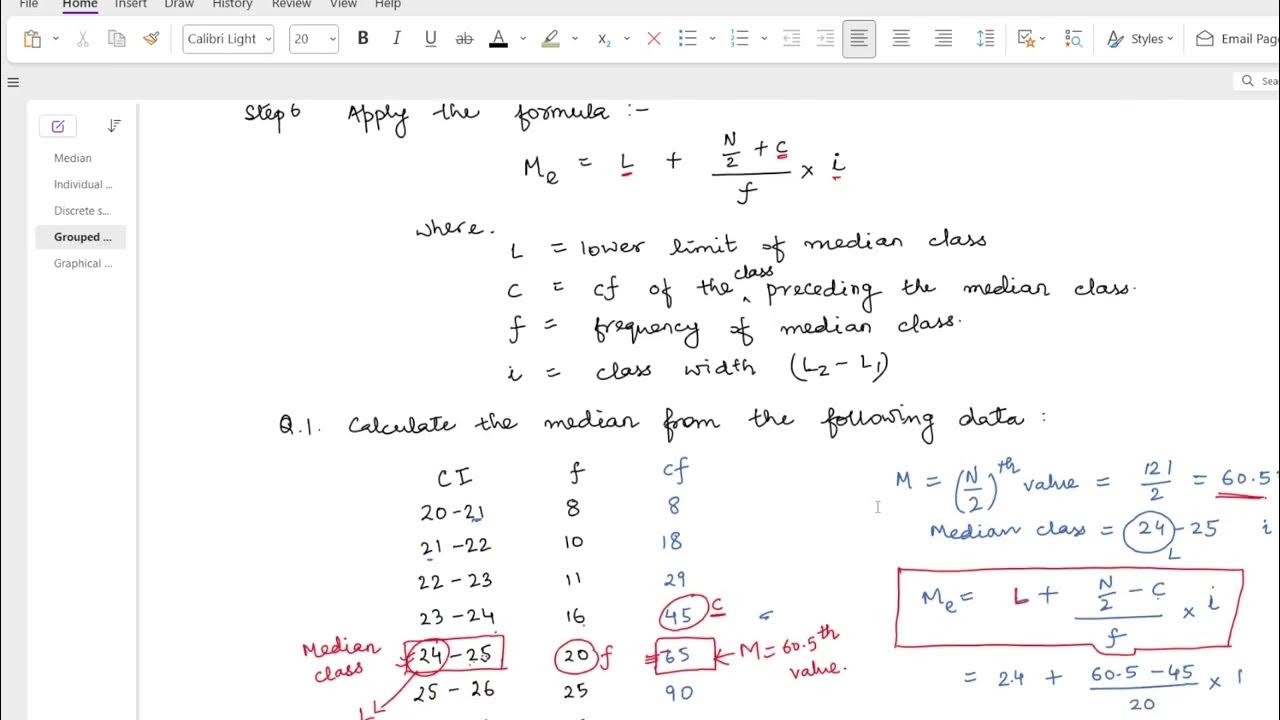 File Home Insert Draw History Review View Help
Calibri Light 20 B I U ab A X₂ Styles Email Page
Sea
Median
Individual ...
Discrete s...
Grouped ...
Graphical ...
Step 6 Apply the formula :-
Me = L + (N/2 + C)/f × i
where.
L = lower limit of median class
C = cf of the class preceding the median class.
f = frequency of median class.
i = class width (L₂ - L₁)
Q.1. Calculate the median from the following data :
CI f cf
20 - 21 8 8
21 - 22 10 18
22 - 23 11 29
23 - 24 16 45 C
Median class 24 - 25 20 f 65 ← M = 60.5th value.
25 - 26 25 90
L
M = (N/2)th value = 121/2 = 60.5
Median class = 24 - 25 i
L
Me = L + (N/2 - C)/f × i
= 24 + (60.5 - 45)/20 × 1